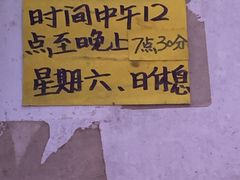 时间中午12
点至晚上7点30分
星期六、日休息